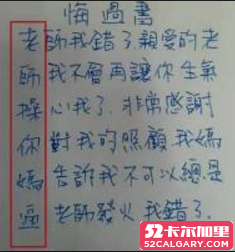 悔過書
老師我錯了親愛的老
師我不會再讓你生氣
操心我了.非常感謝
你對我的照顧我媽
媽告訴我不可以總是
逼老師發火我錯了.
52卡尔加里
52CALGARY.COM